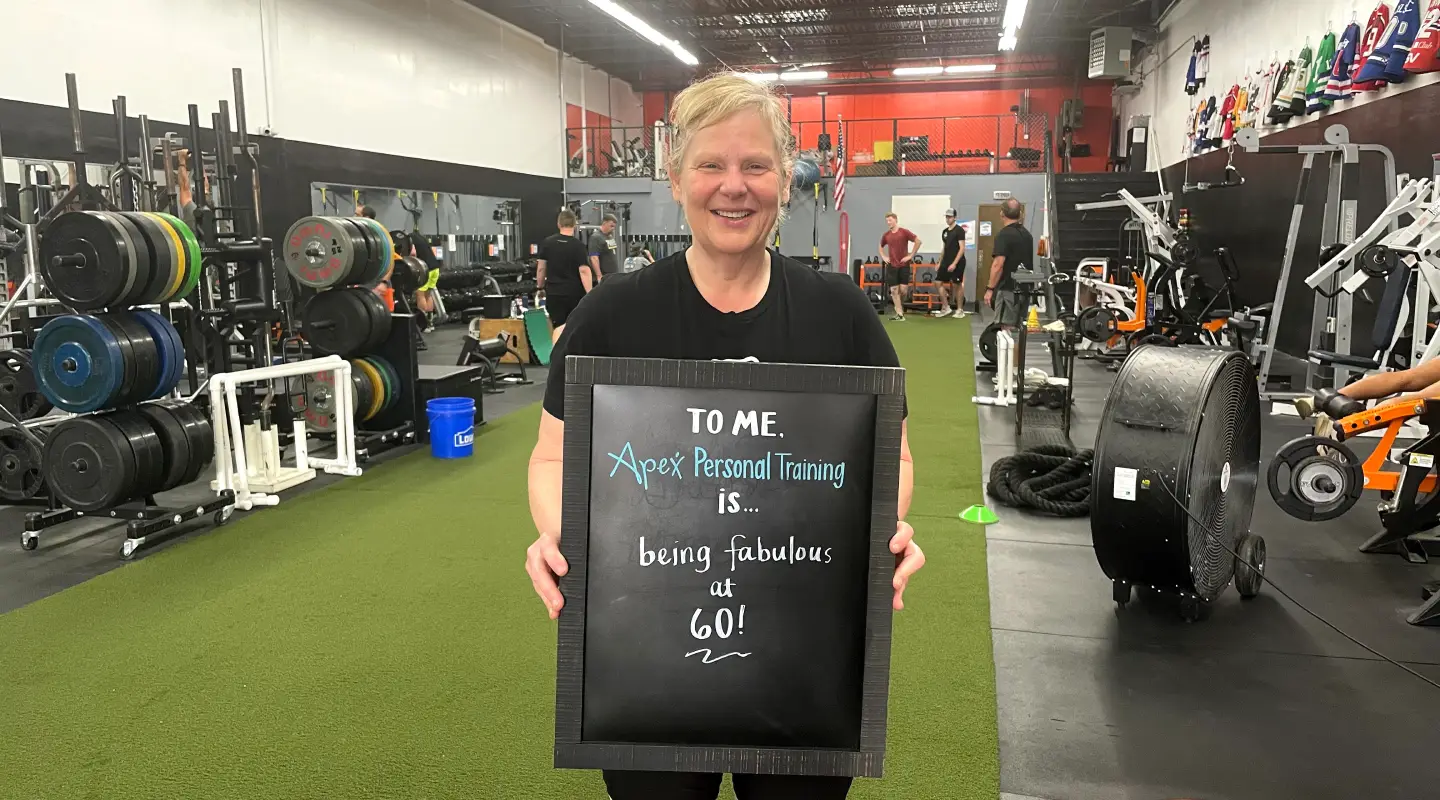 TO ME,
Apex Personal Training
is...
being fabulous
at
60!